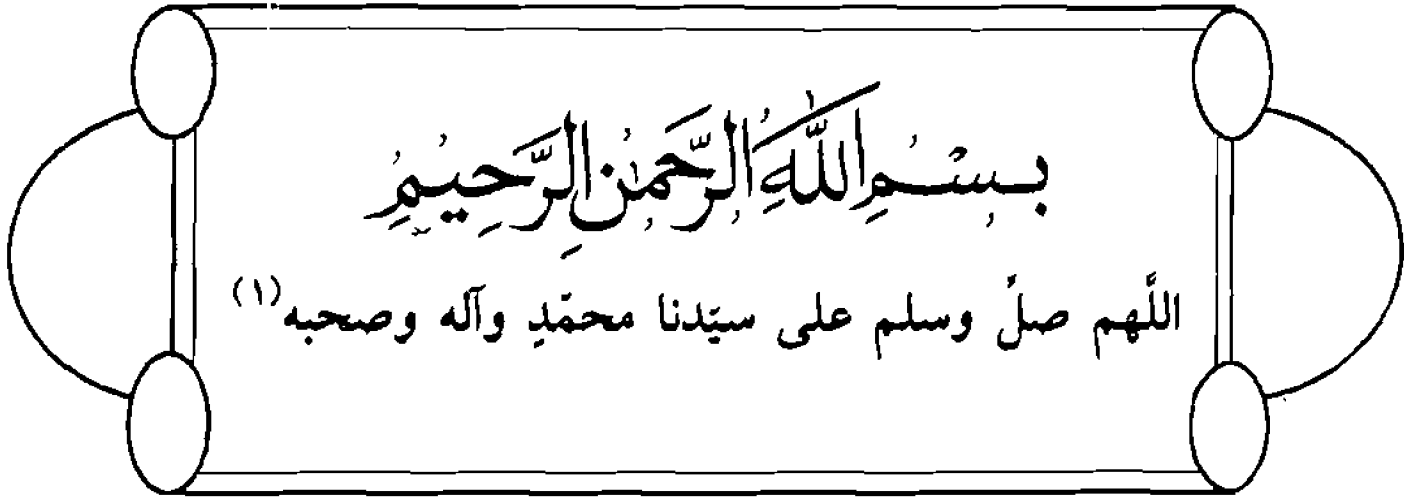 بِسْمِ اللَّهِ الرَّحْمَٰنِ الرَّحِيمِ
اللَّهم صلِّ وسلم على سيّدنا محمّدٍ وآله وصحبه(١)